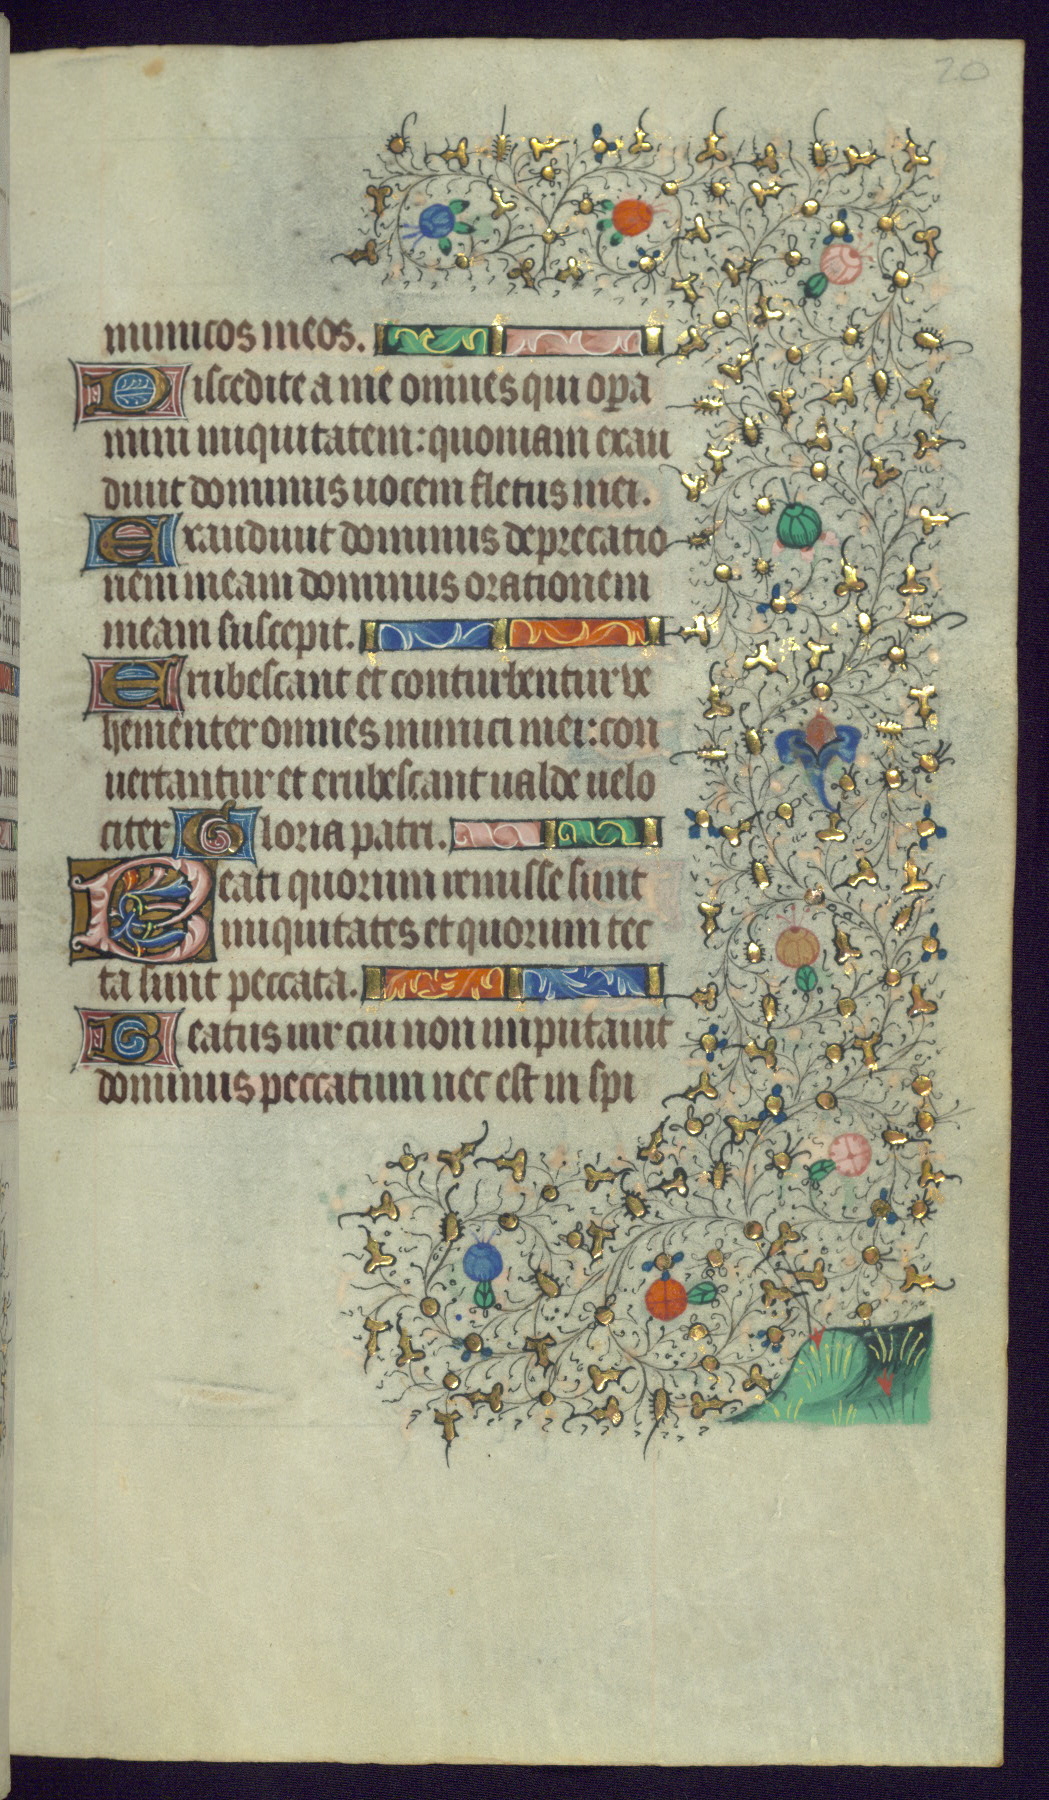 20
inimicos meos.
Discedite a me omnes qui opera
mini iniquitatem: quoniam exau
diuit dominus uocem fletus mei.
Exaudiuit dominus deprecatio
nem meam dominus orationem
meam suscepit.
Erubescant et conturbentur ve
hementer omnes inimici mei: con
uertantur et erubescant ualde uelo
citer Gloria patri.
Beati quorum remisse sunt
iniquitates et quorum tec
ta sunt peccata.
Beatus uir cui non imputauit
dominus peccatum nec est in spi